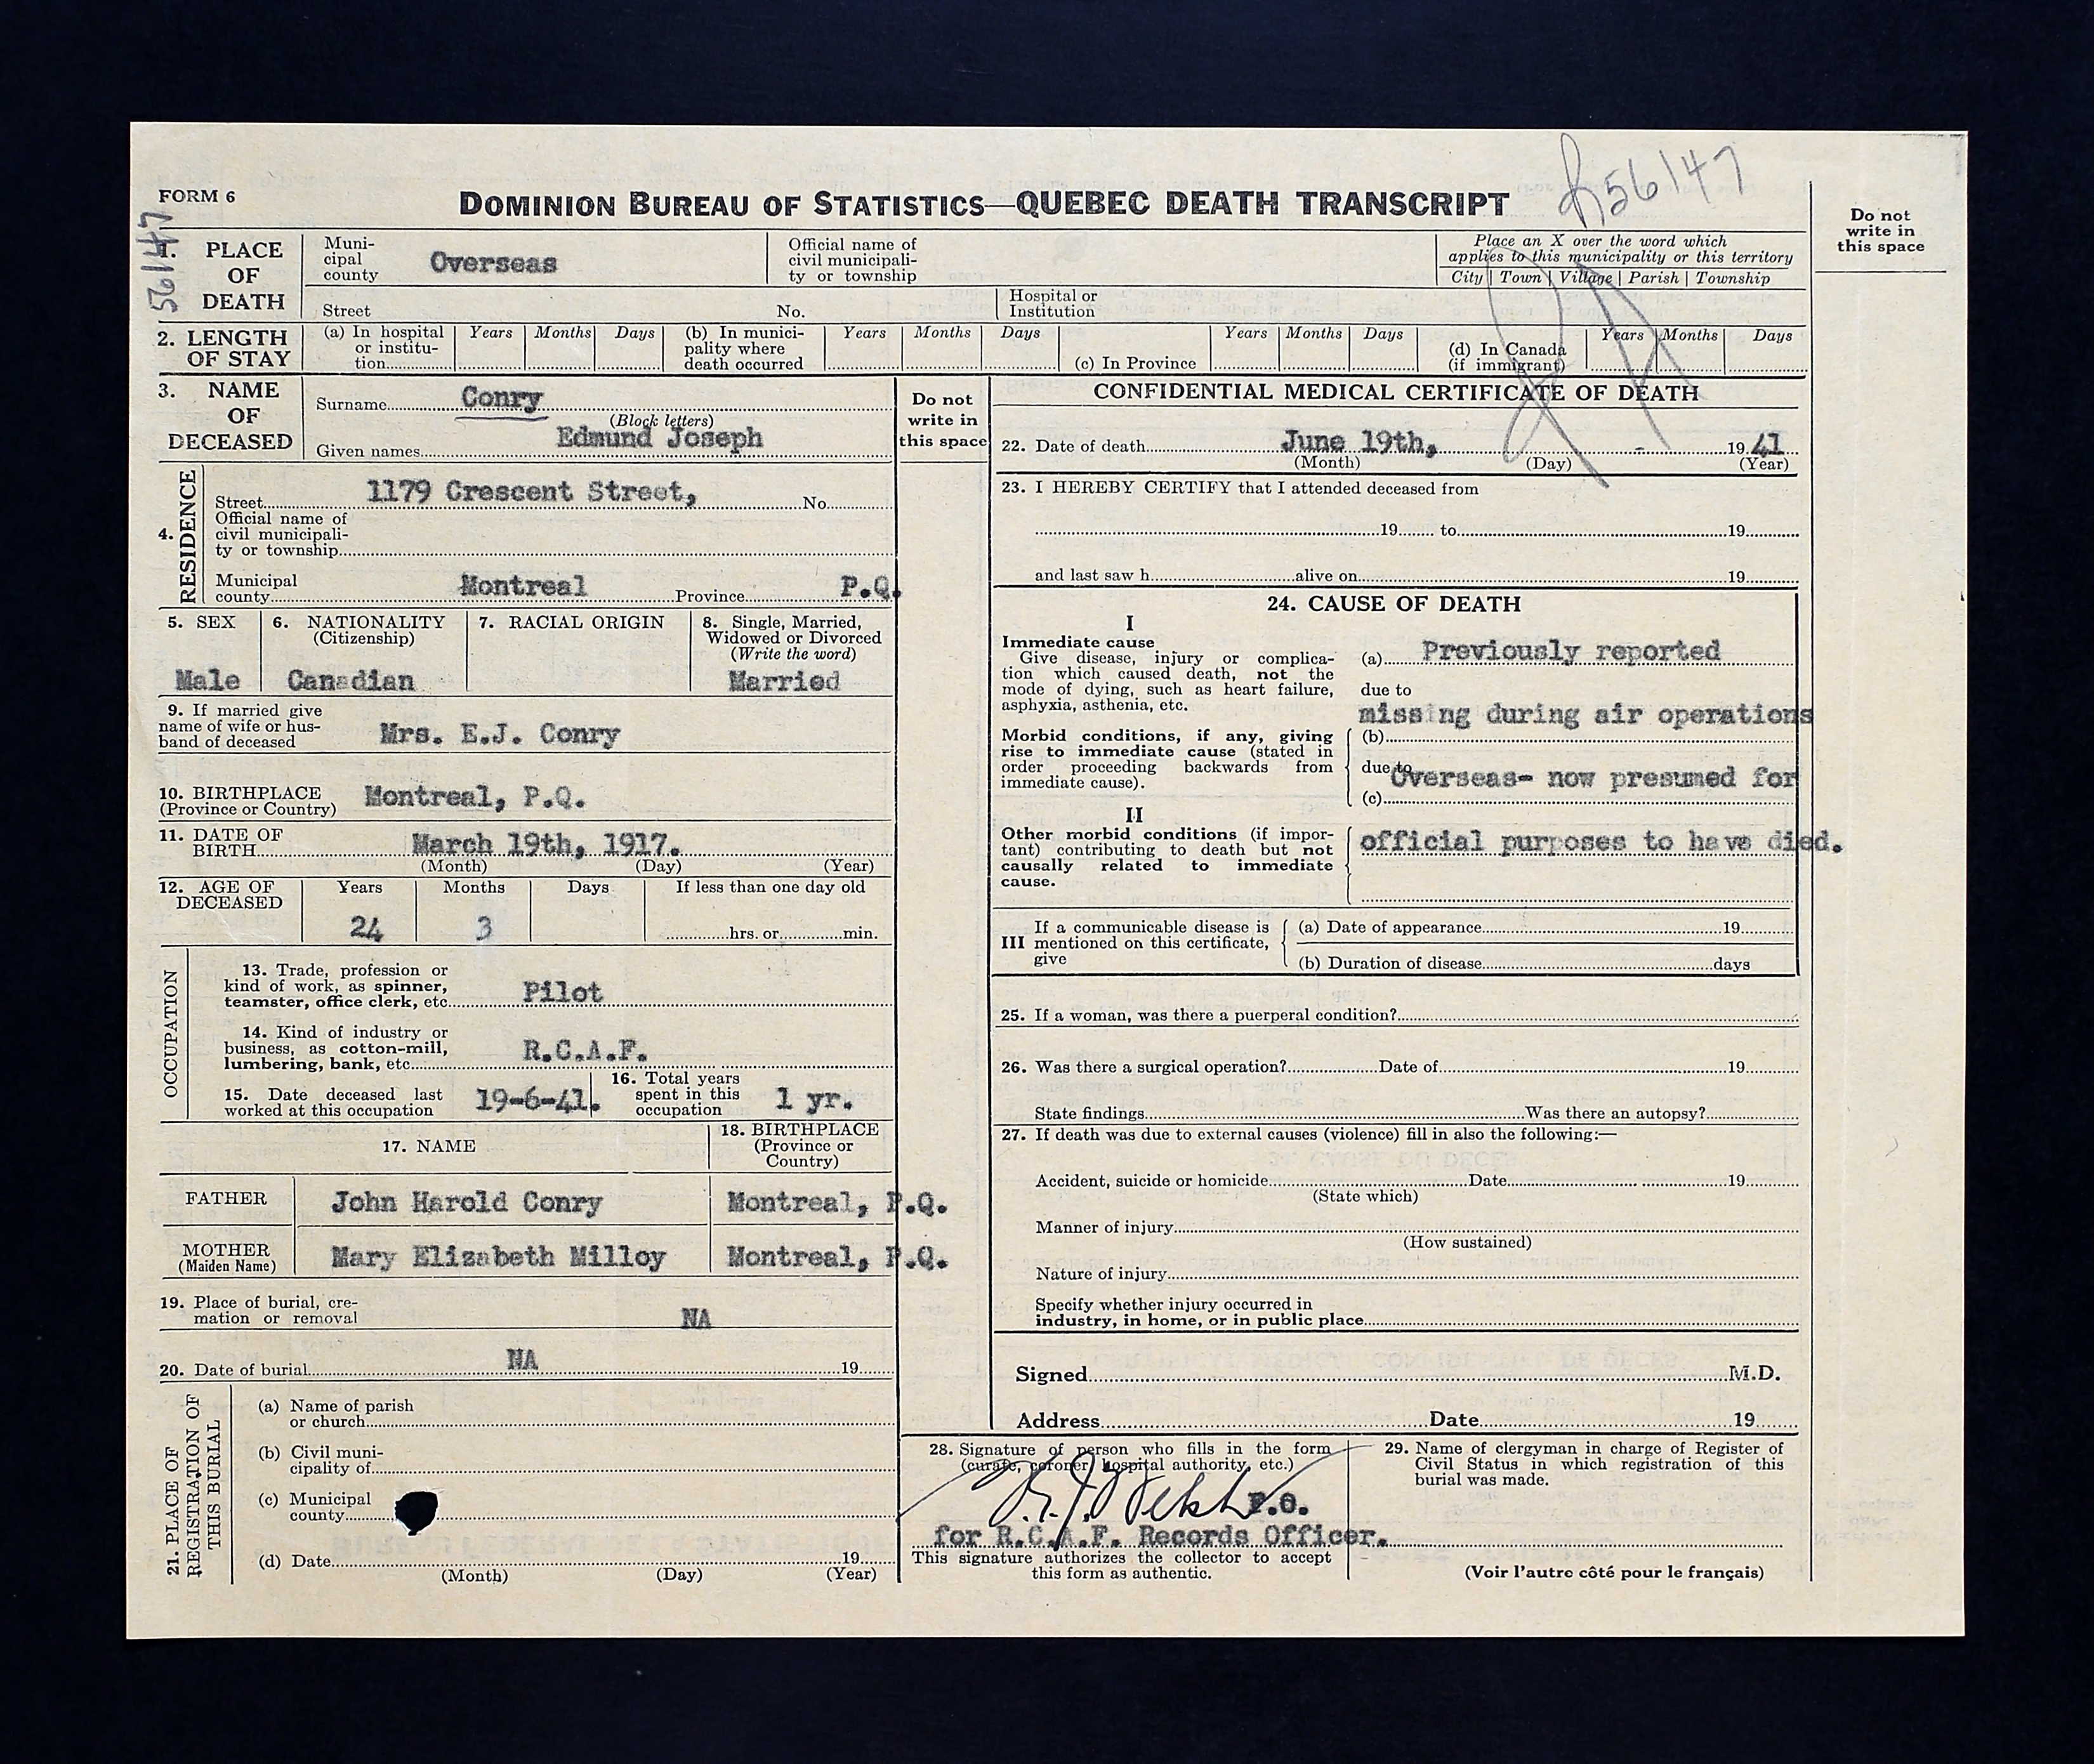 R56147
56147
FORM 6
DOMINION BUREAU OF STATISTICS—QUEBEC DEATH TRANSCRIPT
Do not write in this space
1. PLACE OF DEATH
Municipal county Overseas
Official name of civil municipality or township
Place an X over the word which applies to this municipality or this territory
City | Town | Village | Parish | Township
Street No.
Hospital or Institution
2. LENGTH OF STAY
(a) In hospital or institution Years Months Days
(b) In municipality where death occurred Years Months Days
(c) In Province Years Months Days
(d) In Canada (if immigrant) Years Months Days
3. NAME OF DECEASED
Surname Conry
(Block letters)
Given names Edmund Joseph
Do not write in this space
4. RESIDENCE
Street 1179 Crescent Street, No.
Official name of civil municipality or township
Municipal county Montreal Province P.Q.
5. SEX Male
6. NATIONALITY (Citizenship) Canadian
7. RACIAL ORIGIN
8. Single, Married, Widowed or Divorced (Write the word) Married
9. If married give name of wife or husband of deceased Mrs. E.J. Conry
10. BIRTHPLACE (Province or Country) Montreal, P.Q.
11. DATE OF BIRTH March 19th, 1917.
(Month) (Day) (Year)
12. AGE OF DECEASED Years 24 Months 3 Days
If less than one day old hrs. or min.
OCCUPATION
13. Trade, profession or kind of work, as spinner, teamster, office clerk, etc. Pilot
14. Kind of industry or business, as cotton-mill, lumbering, bank, etc. R.C.A.F.
15. Date deceased last worked at this occupation 19-6-41.
16. Total years spent in this occupation 1 yr.
17. NAME
18. BIRTHPLACE (Province or Country)
FATHER John Harold Conry Montreal, P.Q.
MOTHER (Maiden Name) Mary Elizabeth Milloy Montreal, P.Q.
19. Place of burial, cremation or removal NA
20. Date of burial NA 19
21. PLACE OF REGISTRATION OF THIS BURIAL
(a) Name of parish or church
(b) Civil municipality of
(c) Municipal county
(d) Date 19
(Month) (Day) (Year)
CONFIDENTIAL MEDICAL CERTIFICATE OF DEATH
22. Date of death June 19th, - 19 41
(Month) (Day) (Year)
23. I HEREBY CERTIFY that I attended deceased from
19 to 19
and last saw h alive on 19
24. CAUSE OF DEATH
I
Immediate cause
Give disease, injury or complication which caused death, not the mode of dying, such as heart failure, asphyxia, asthenia, etc.
(a) Previously reported
due to
missing during air operations
Morbid conditions, if any, giving rise to immediate cause (stated in order proceeding backwards from immediate cause).
(b)
due to Overseas- now presumed for
(c)
II
Other morbid conditions (if important) contributing to death but not causally related to immediate cause.
official purposes to have died.
III If a communicable disease is mentioned on this certificate, give
(a) Date of appearance 19
(b) Duration of disease days
25. If a woman, was there a puerperal condition?
26. Was there a surgical operation? Date of 19
State findings Was there an autopsy?
27. If death was due to external causes (violence) fill in also the following:—
Accident, suicide or homicide Date 19
(State which)
Manner of injury
(How sustained)
Nature of injury
Specify whether injury occurred in industry, in home, or in public place
Signed M.D.
Address Date 19
28. Signature of person who fills in the form (curate, coroner, hospital authority, etc.)
F.O.
for R.C.A.F. Records Officer.
This signature authorizes the collector to accept this form as authentic.
29. Name of clergyman in charge of Register of Civil Status in which registration of this burial was made.
(Voir l'autre côté pour le français)